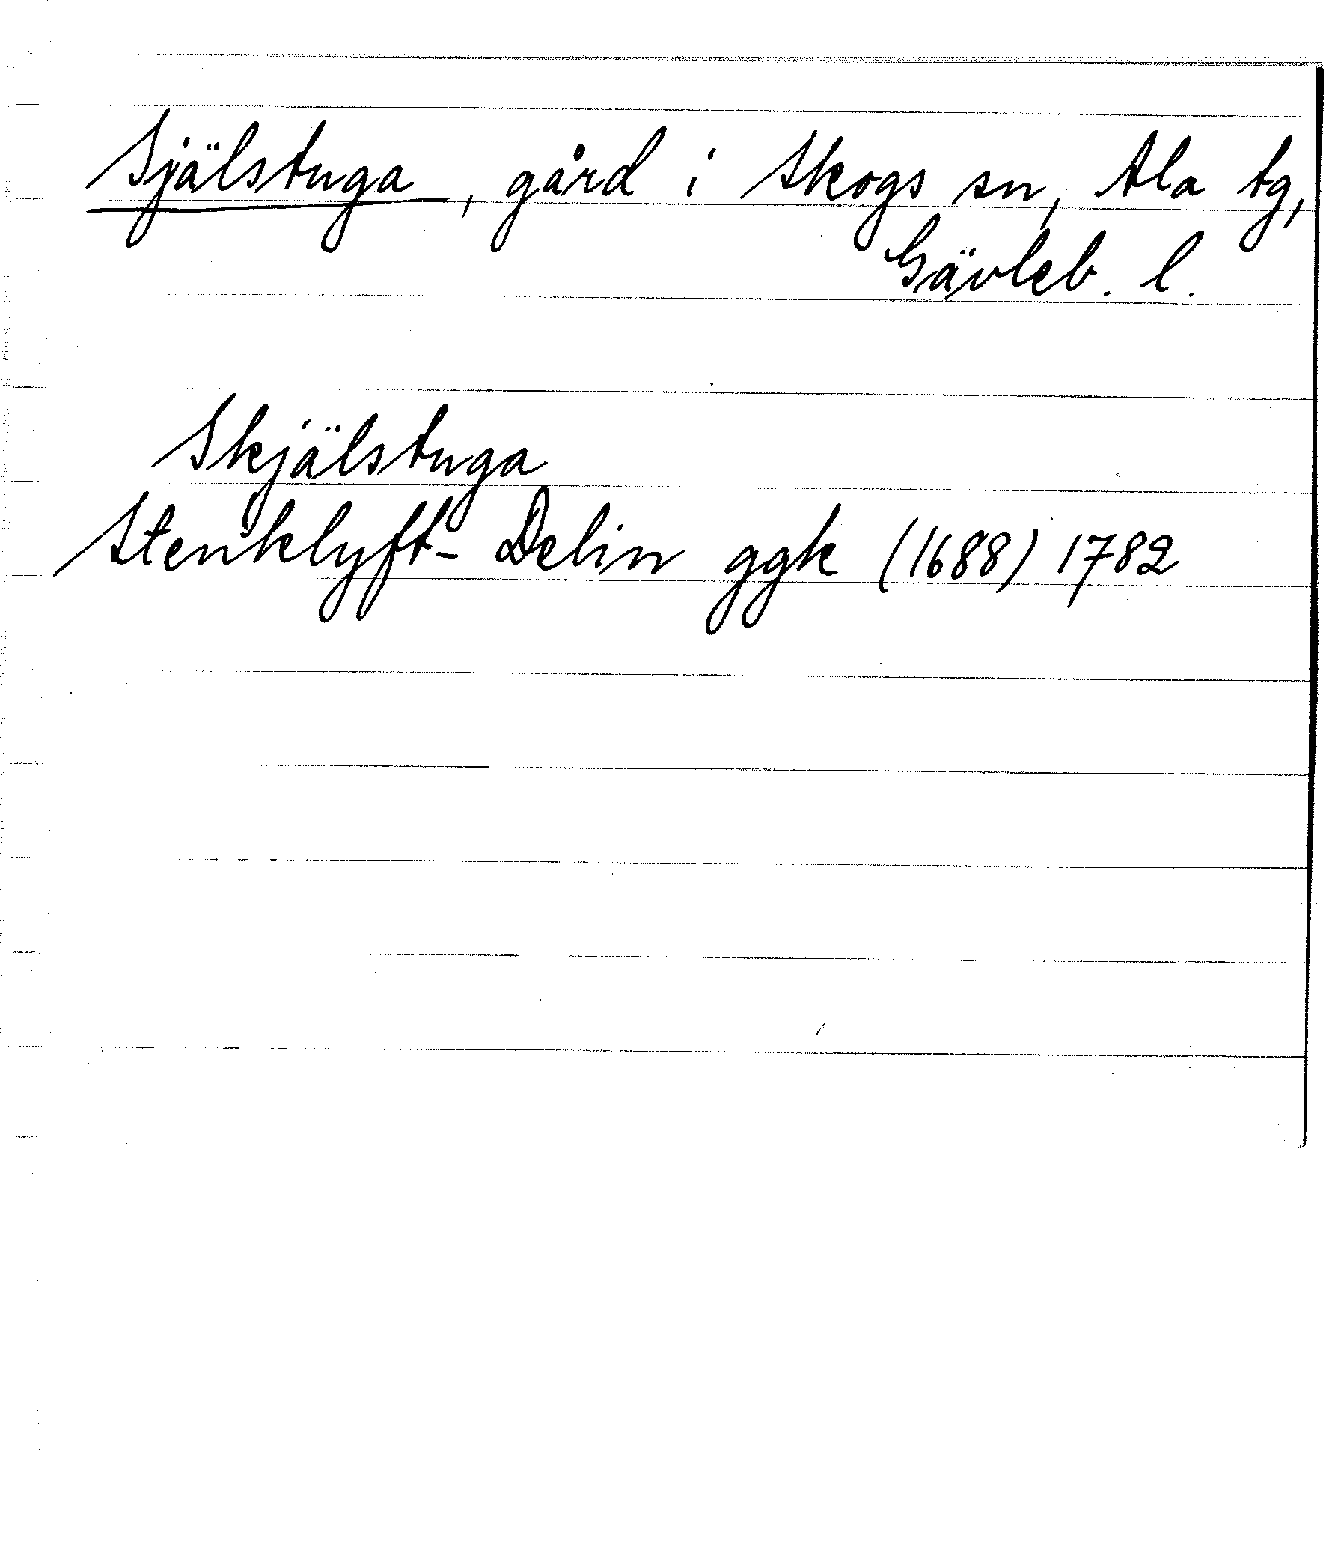 Själstuga, gård i Skogs sn, Ala tg,
Gävleb. l.
Skjälstuga
Stenklyft- Delin ggk (1688) 1782